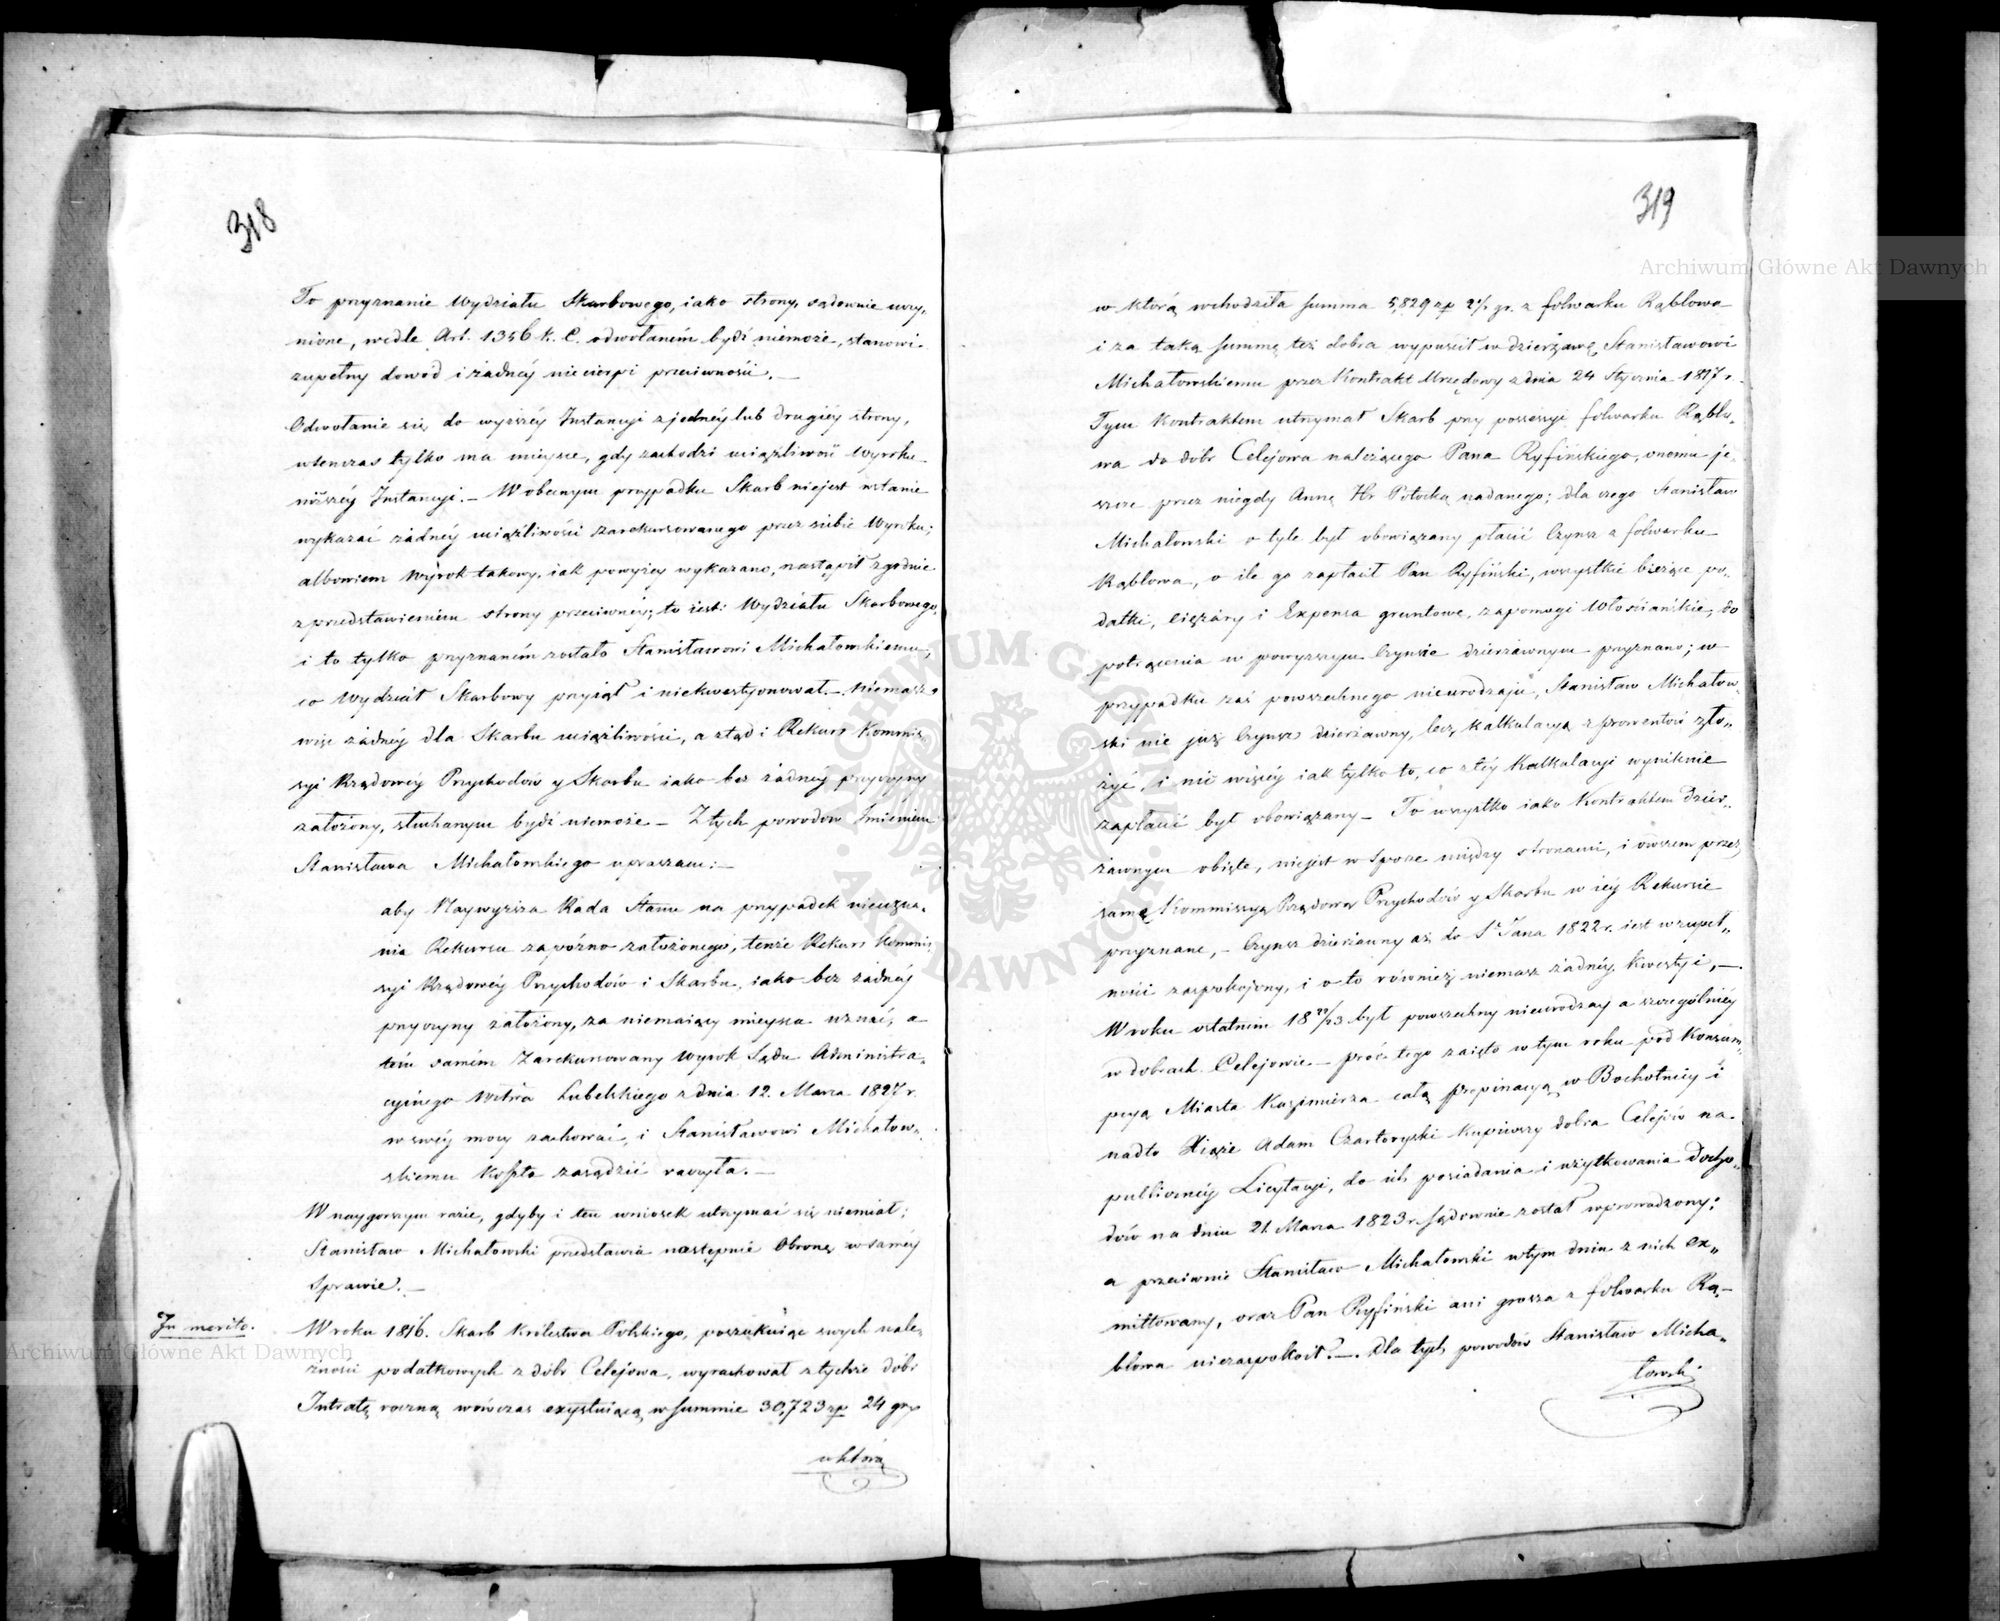 318
To przyznanie Wydziału Skarbowego, iako strony, sądownie uczy„
nione, wedle Art. 1356 K. C. odwołaném bydź niemoże, stanowi
zupełny dowod i żadnéy nie cierpi przeciwności. —
Odwołanie się do wyższéy Instancyi z jednéy lub drugiéy strony,
wtenczas tylko ma mieysce, gdy zachodzi uciążliwość wyroku
niższéy Instancyi. — W obecnym przypadku Skarb niejest wstanie
wykazać żadnéy uciążliwości zarekursowanego przez siebie Wyroku;
albowiem Wyrok takowy, iak powyżey wykazano, nastąpił zgodnie
z przedstawieniem strony przeciwnéy; to iest: Wydziału Skarbowego,
i to tylko przyznaném zostało Stanisławowi Michałowskiemu,
co Wydział Skarbowy przyiął i niekwestyonował. — Niemasz
więc żadnéy dla Skarbu uciążliwości, a ztąd i Rekurs Kommis„
syi Rządowéy Przychodów y Skarbu iako bez żadnéy przyczyny
założony, słuchanym bydź niemoże — Z tych powodów Imieniem
Stanisława Michałowskiego upraszam: —
aby Naywyższa Rada Stanu na przypadek nieuzna„
nia Rekursu zapóźno założonego, tenże Rekurs Kommis
syi Rządowéy Przychodów i Skarbu, iako bez żadnéy
przyczyny założony, za niemaiący mieysca uznać, a
tém samém Zarekursowany Wyrok Sądu Administra„
cyinego Wdztwa Lubelskiego z dnia 12. Marca 1827 r.
w swéy mocy zachować, i Stanisławowi Michałow„
skiemu koszta zasądzić raczyła. —
W naygorszym razie, gdyby i ten wniosek utrzymać się niemiał;
Stanisław Michałowski przedstawia następnie Obronę w saméy
Sprawie. —
In merito.
W roku 1816. Skarb Królestwa Polskiego, poszukuiąc swych nale„
żności podatkowych z dóbr Celejowa, wyrachował z tychże dóbr
Intratę roczną wówczas exystuiącą w summie 30,723 zp 24 gr
w którą
319
w którą wchodziła summa 5,829 zp gr. z folwarku Rąblowa
i za taką summę też dobra wypuścił w dzierżawę Stanisławowi
Michałowskiemu przez Kontrakt Urzędowy z dnia 24 Stycznia 1817 r.
Tym Kontraktem utrzymał Skarb przy possessyi folwarku Rąblo„
wa do dóbr Celejowa należącego Pana Ryfińskiego, onemu je„
szcze przez niegdy Annę Hr Potocką nadanego; dla czego Stanisław
Michałowski o tyle był obowiązany płacić Czynsz z folwarku
Rąblowa, o ile go zapłacił Pan Ryfiński, wszystkie bieżące po„
datki, ciężary i Expensa gruntowe, zapomogi Włościańskie, do
potrącenia w powyższym Czynszie dzierżawnym przyznano; w
przypadku zaś powszechnego nieurodzaju, Stanisław Michałow„
ski nie już Czynsz dzierżawny, lecz kalkulacyą z prowentów zło„
żyć, i nic więcéy iak tylko to, co z téy Kalkulacyi wyniknie
zapłacić był obowiązany — To wszystko iako Kontraktem dzier„
żawnym obięte, niejest w sporze między stronami, i owszem przez
samę Kommissyą Rządową Przychodów y Skarbu w iéy Rekursie
przyznane, — Czynsz dzierżawny aż do St Jana 1822 r. iest w zupeł„
ności zaspokojony, i o to również niemasz żadnéy kwestyi, —.
W roku ostatnim 18 22/23 był powszechny nieurodzay a szczególniéy
w dobrach Celejowie — prócz tego zaięto w tym roku pod Konsum„
pcyą Miasta Kazimierza całą propinacyą w Bochotnicy i
nadto Xiąże Adam Czartoryski kupiwszy dobra Celejów na
publicznéy Licytacyi, do ich posiadania i użytkowania docho„
dów na dniu 21 Marca 1823 r. sądownie został wprowadzony;
a przeciwnie Stanisław Michałowski w tym dniu z nich ex„
mittowany, oraz Pan Ryfiński ani grosza z folwarku Rą„
blowa niezaspokoił. —. Dla tych powodów Stanisław Micha„
łowski